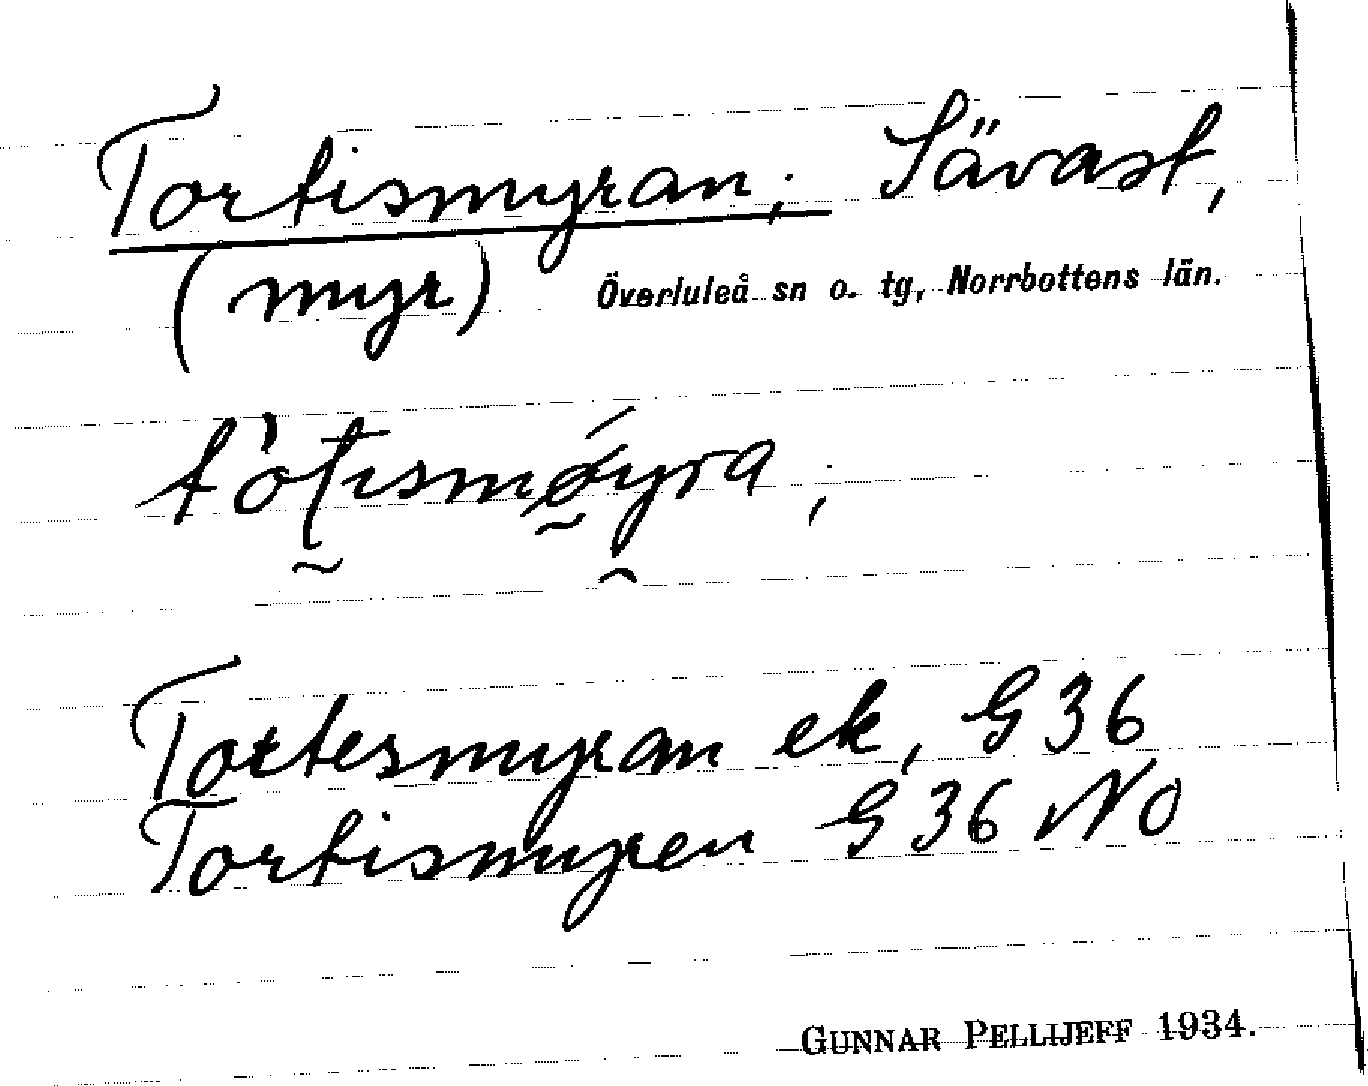 Tortismyran; Sävast,
(myr) Överluleå sn o. tg, Norrbottens län.
Tortesmyran ek, G 36
Tortismyren G 36 NO
GUNNAR PELLIJEFF 1934.